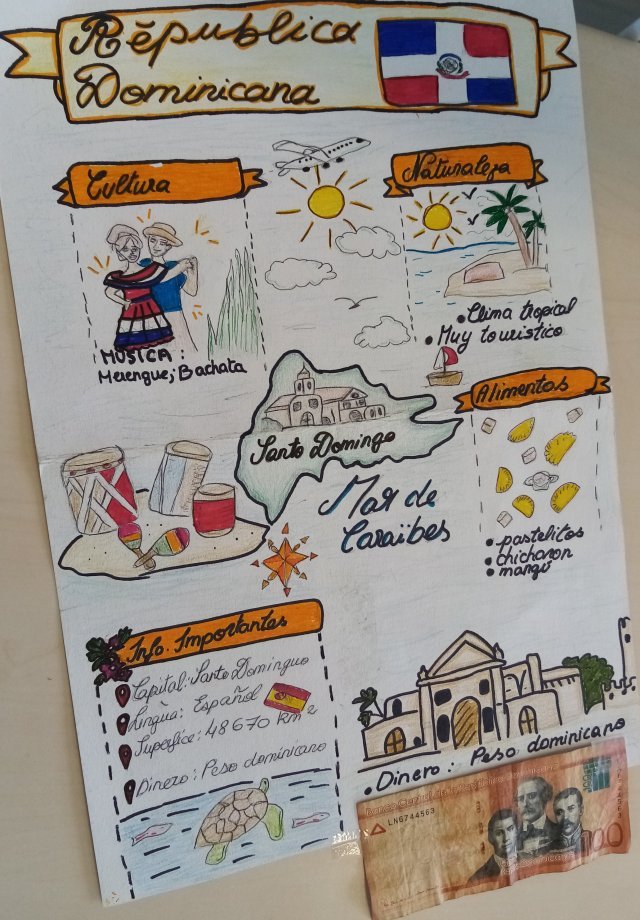 Républica
Dominicana
Cultura
Naturaleza
MÚSICA :
Merengue, Bachata
Clima tropical
Muy touristico
Santo Domingo
Alimentos
Mar de
Caraïbes
pastelitos
chicharon
mangú
Info. Importantes
Capital: Santo Dominguo
Lingua: Español
Superfice: 48 670 km2
Dinero: Peso dominicano
Dinero : Peso dominicano
LN6744563
100